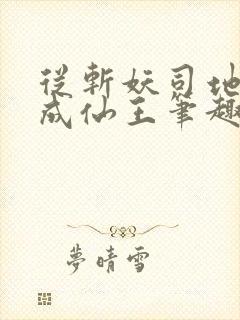 從斬妖司地
成仙王筆趣
夢晴雪